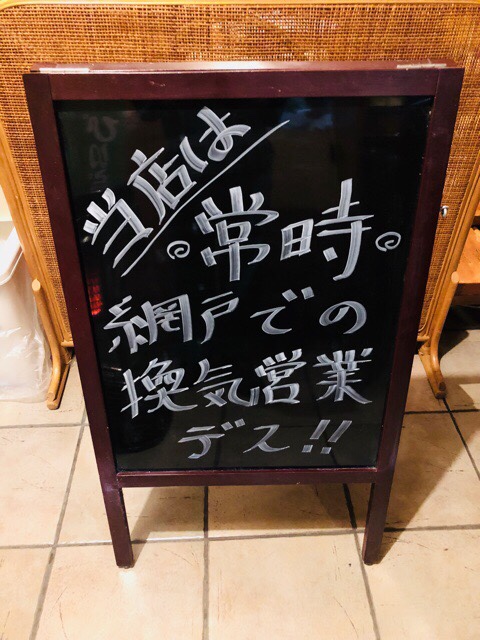 当店は
常時
網戸での
換気営業
デス!!